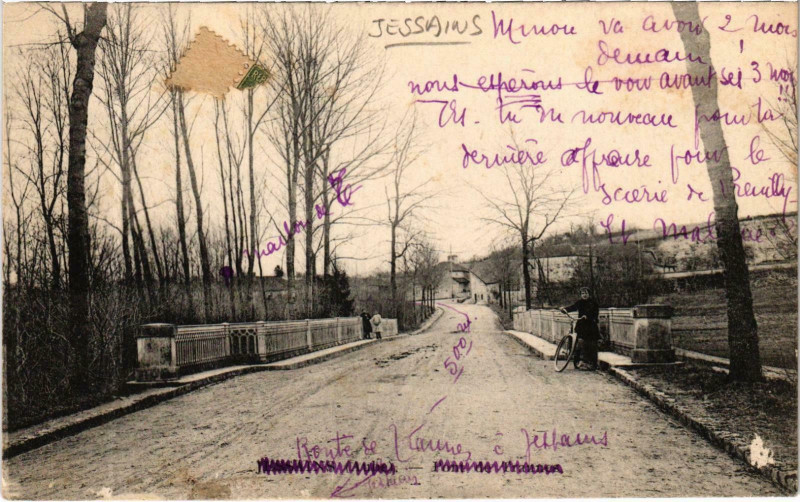 JESSAINS
Minou va avoir 2 mois
demain !
nous espérons le voir avant ses 3 mois !!
tu du nouveau pour ta
dernière affaire pour le
scierie de Preuilly
et
maison de
500 m
Route de Vanne à Jessains